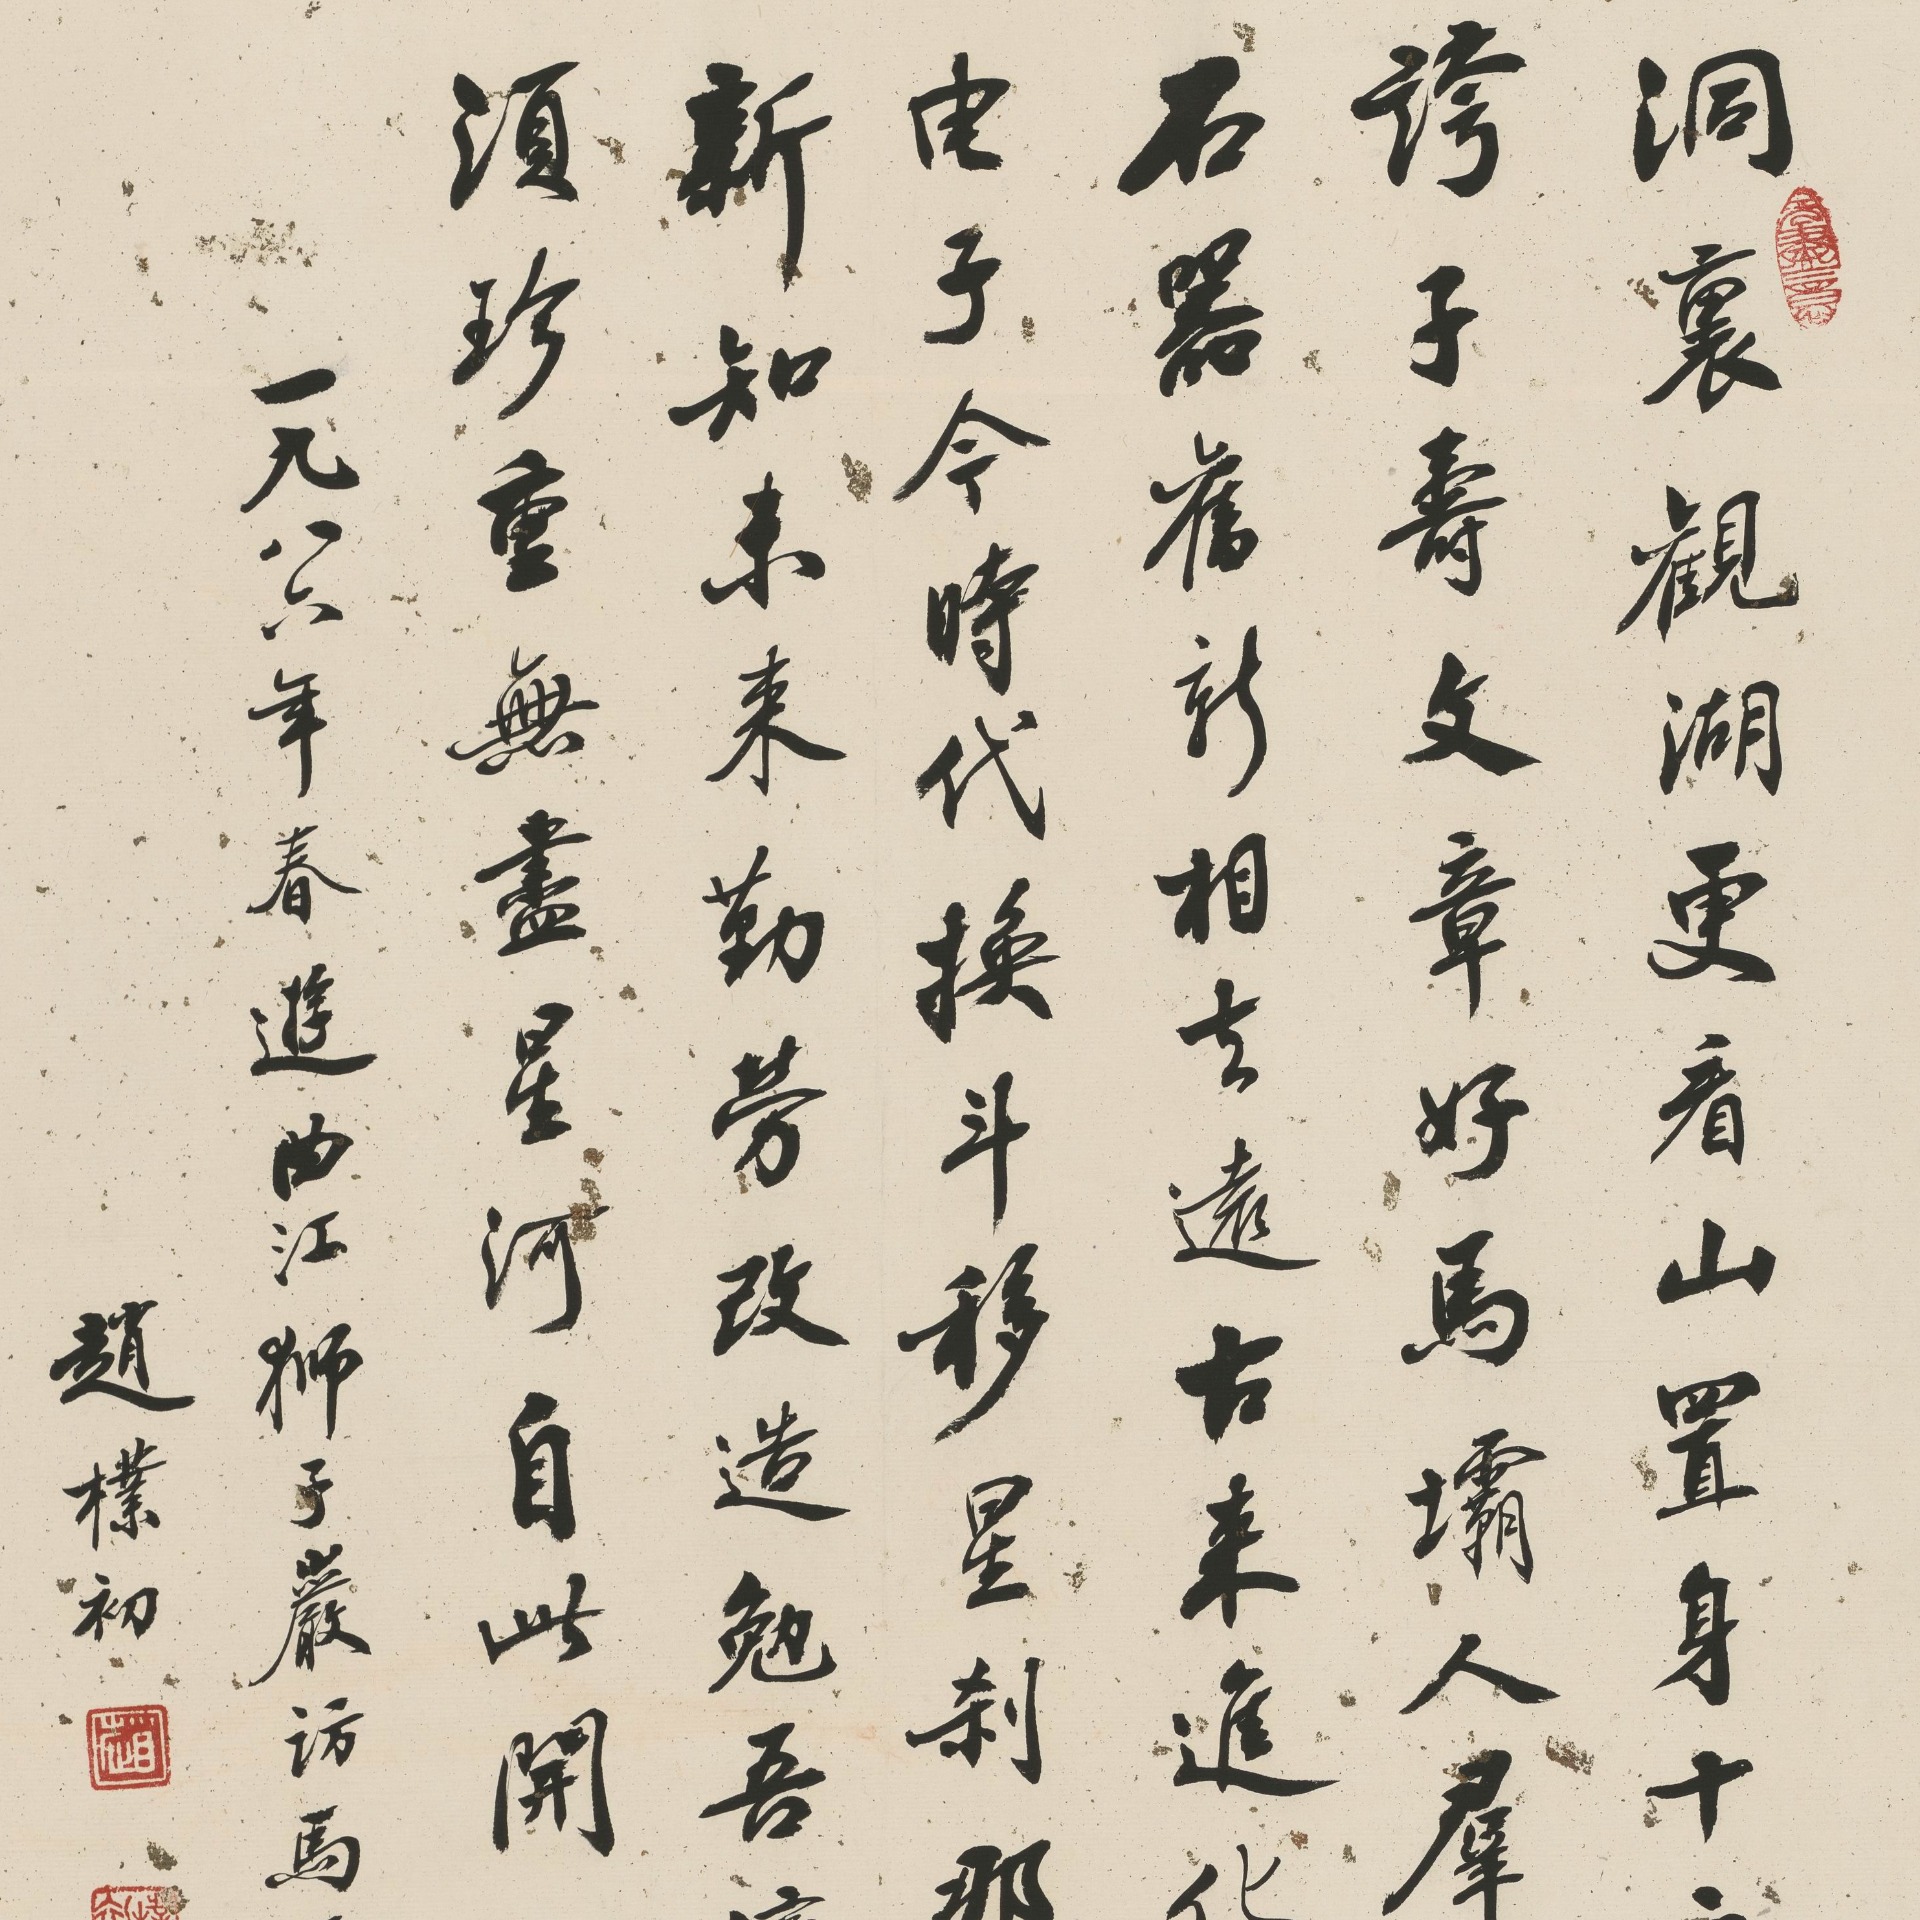 洞裏觀湖更看山置身十
誇子壽文章好馬壩人羣
石器舊新相去遠古來進化
电子今時代換斗移星刹那
新知未來勤勞改造勉吾
須珍重無盡星河自此開
一九八六年春遊曲江獅子巖訪馬
趙樸初